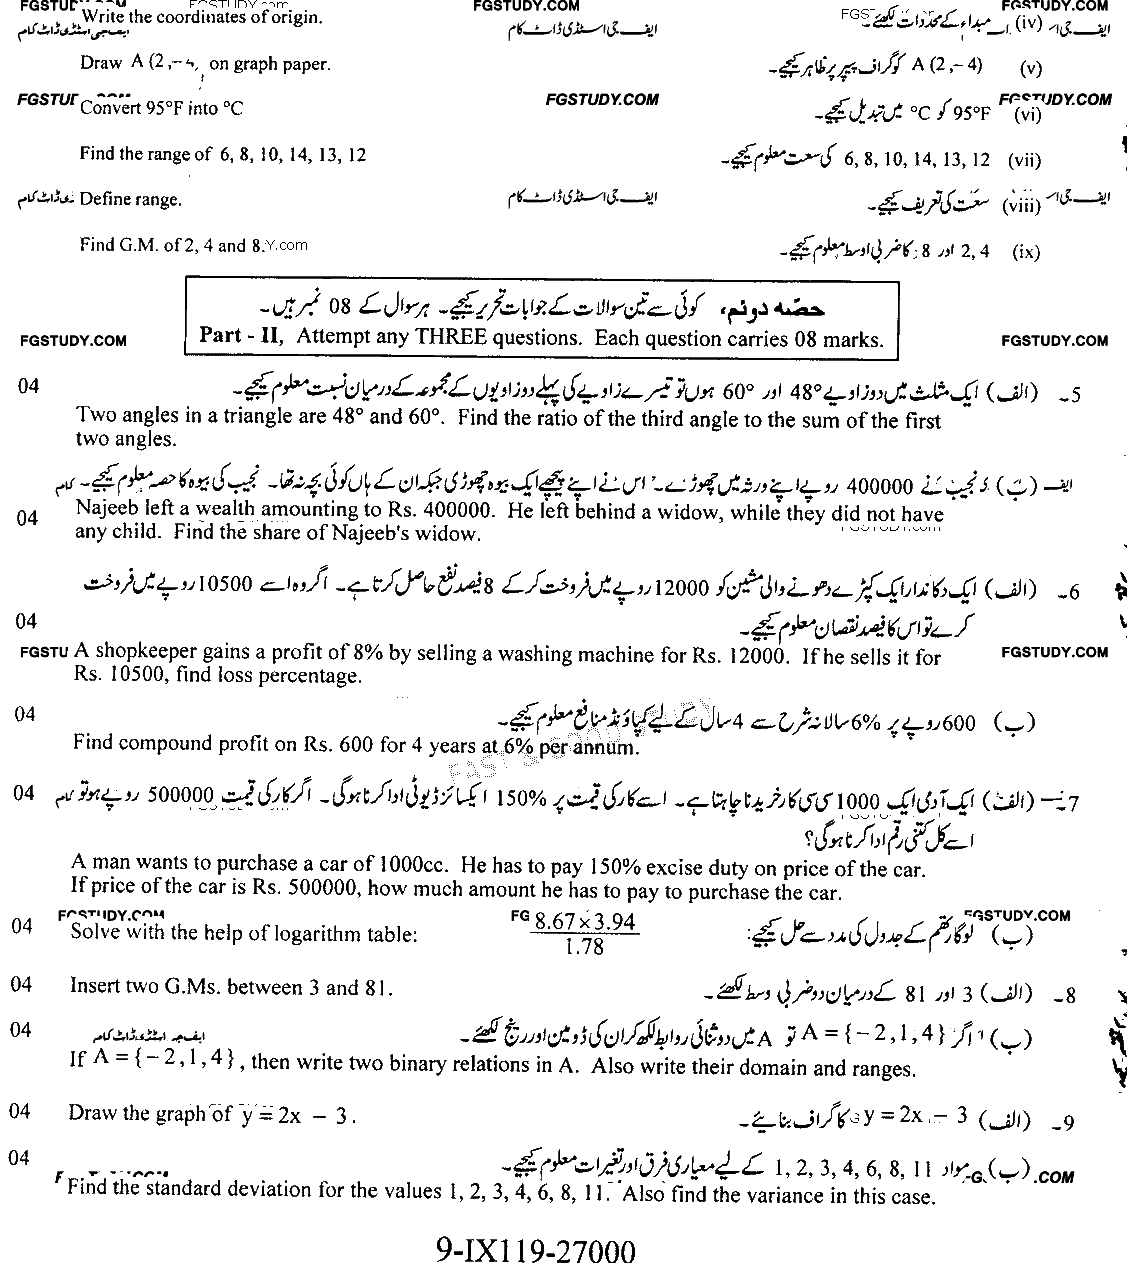 FGSTUDY.COM FGSTUDY.COM
Write the coordinates of origin. مبداء کے محددات لکھئے۔ (iv)
ایف جی اسٹڈی ڈاٹ کام ایف جی اسٹڈی ڈاٹ کام
Draw A (2,−4) on graph paper. A (2,− 4) کو گراف پیپر پر ظاہر کیجیے۔ (v)
FGSTUDY.COM FGSTUDY.COM
Convert 95°F into °C 95°F کو °C میں تبدیل کیجیے۔ (vi)
Find the range of 6, 8, 10, 14, 13, 12 6, 8, 10, 14, 13, 12 کی سعت معلوم کیجیے۔ (vii)
Define range. ایف جی اسٹڈی ڈاٹ کام سعت کی تعریف کیجیے۔ (viii)
Find G.M. of 2, 4 and 8. 2, 4 اور 8 کا ضربی اوسط معلوم کیجیے۔ (ix)
حصّہ دوئم، کوئی سے تین سوالات کے جوابات تحریر کیجیے۔ ہر سوال کے 08 نمبر ہیں۔
Part - II, Attempt any THREE questions. Each question carries 08 marks.
FGSTUDY.COM FGSTUDY.COM
04 5۔ (الف) ایک مثلث میں دو زاویے 48° اور 60° ہوں تو تیسرے زاویے کی پہلے دو زاویوں کے مجموعہ کے درمیان نسبت معلوم کیجیے۔
Two angles in a triangle are 48° and 60°. Find the ratio of the third angle to the sum of the first
two angles.
(ب) نجیب نے 400000 روپے اپنے ورثہ میں چھوڑے۔ اس نے اپنے پیچھے ایک بیوہ چھوڑی جبکہ ان کے ہاں کوئی بچہ نہ تھا۔ نجیب کی بیوہ کا حصہ معلوم کیجیے۔
04 Najeeb left a wealth amounting to Rs. 400000. He left behind a widow, while they did not have
any child. Find the share of Najeeb's widow.
6۔ (الف) ایک دکاندار ایک کپڑے دھونے والی مشین کو 12000 روپے میں فروخت کر کے 8 فیصد نفع حاصل کرتا ہے۔ اگر وہ اسے 10500 روپے میں فروخت
04 کرے تو اس کا فیصد نقصان معلوم کیجیے۔
A shopkeeper gains a profit of 8% by selling a washing machine for Rs. 12000. If he sells it for FGSTUDY.COM
Rs. 10500, find loss percentage.
04 (ب) 600 روپے پر 6% سالانہ شرح سے 4 سال کے لیے کمپاؤنڈ منافع معلوم کیجیے۔
Find compound profit on Rs. 600 for 4 years at 6% per annum.
04 7۔ (الف) ایک آدمی ایک 1000 سی سی کار خریدنا چاہتا ہے۔ اسے کار کی قیمت پر 150% ایکسائز ڈیوٹی ادا کرنا ہوگی۔ اگر کار کی قیمت 500000 روپے ہو تو
اسے کل کتنی رقم ادا کرنا ہوگی؟
A man wants to purchase a car of 1000cc. He has to pay 150% excise duty on price of the car.
If price of the car is Rs. 500000, how much amount he has to pay to purchase the car.
FGSTUDY.COM FGSTUDY.COM
04 Solve with the help of logarithm table: 8.67 × 3.94 / 1.78 (ب) لوگارتھم کے جدول کی مدد سے حل کیجیے:
04 Insert two G.Ms. between 3 and 81. 8۔ (الف) 3 اور 81 کے درمیان دو ضربی وسط لکھئے۔
04 ایف جی اسٹڈی ڈاٹ کام (ب) اگر A = {− 2, 1, 4} تو A میں دو ثنائی روابط لکھ کر ان کی ڈومین اور رینج لکھئے۔
If A = {− 2, 1, 4}, then write two binary relations in A. Also write their domain and ranges.
04 Draw the graph of y = 2x − 3. 9۔ (الف) y = 2x − 3 کا گراف بنایئے۔
04 (ب) مواد 1, 2, 3, 4, 6, 8, 11 کے لیے معیاری فرق اور تغیرات معلوم کیجیے۔
Find the standard deviation for the values 1, 2, 3, 4, 6, 8, 11. Also find the variance in this case.
9-IX119-27000